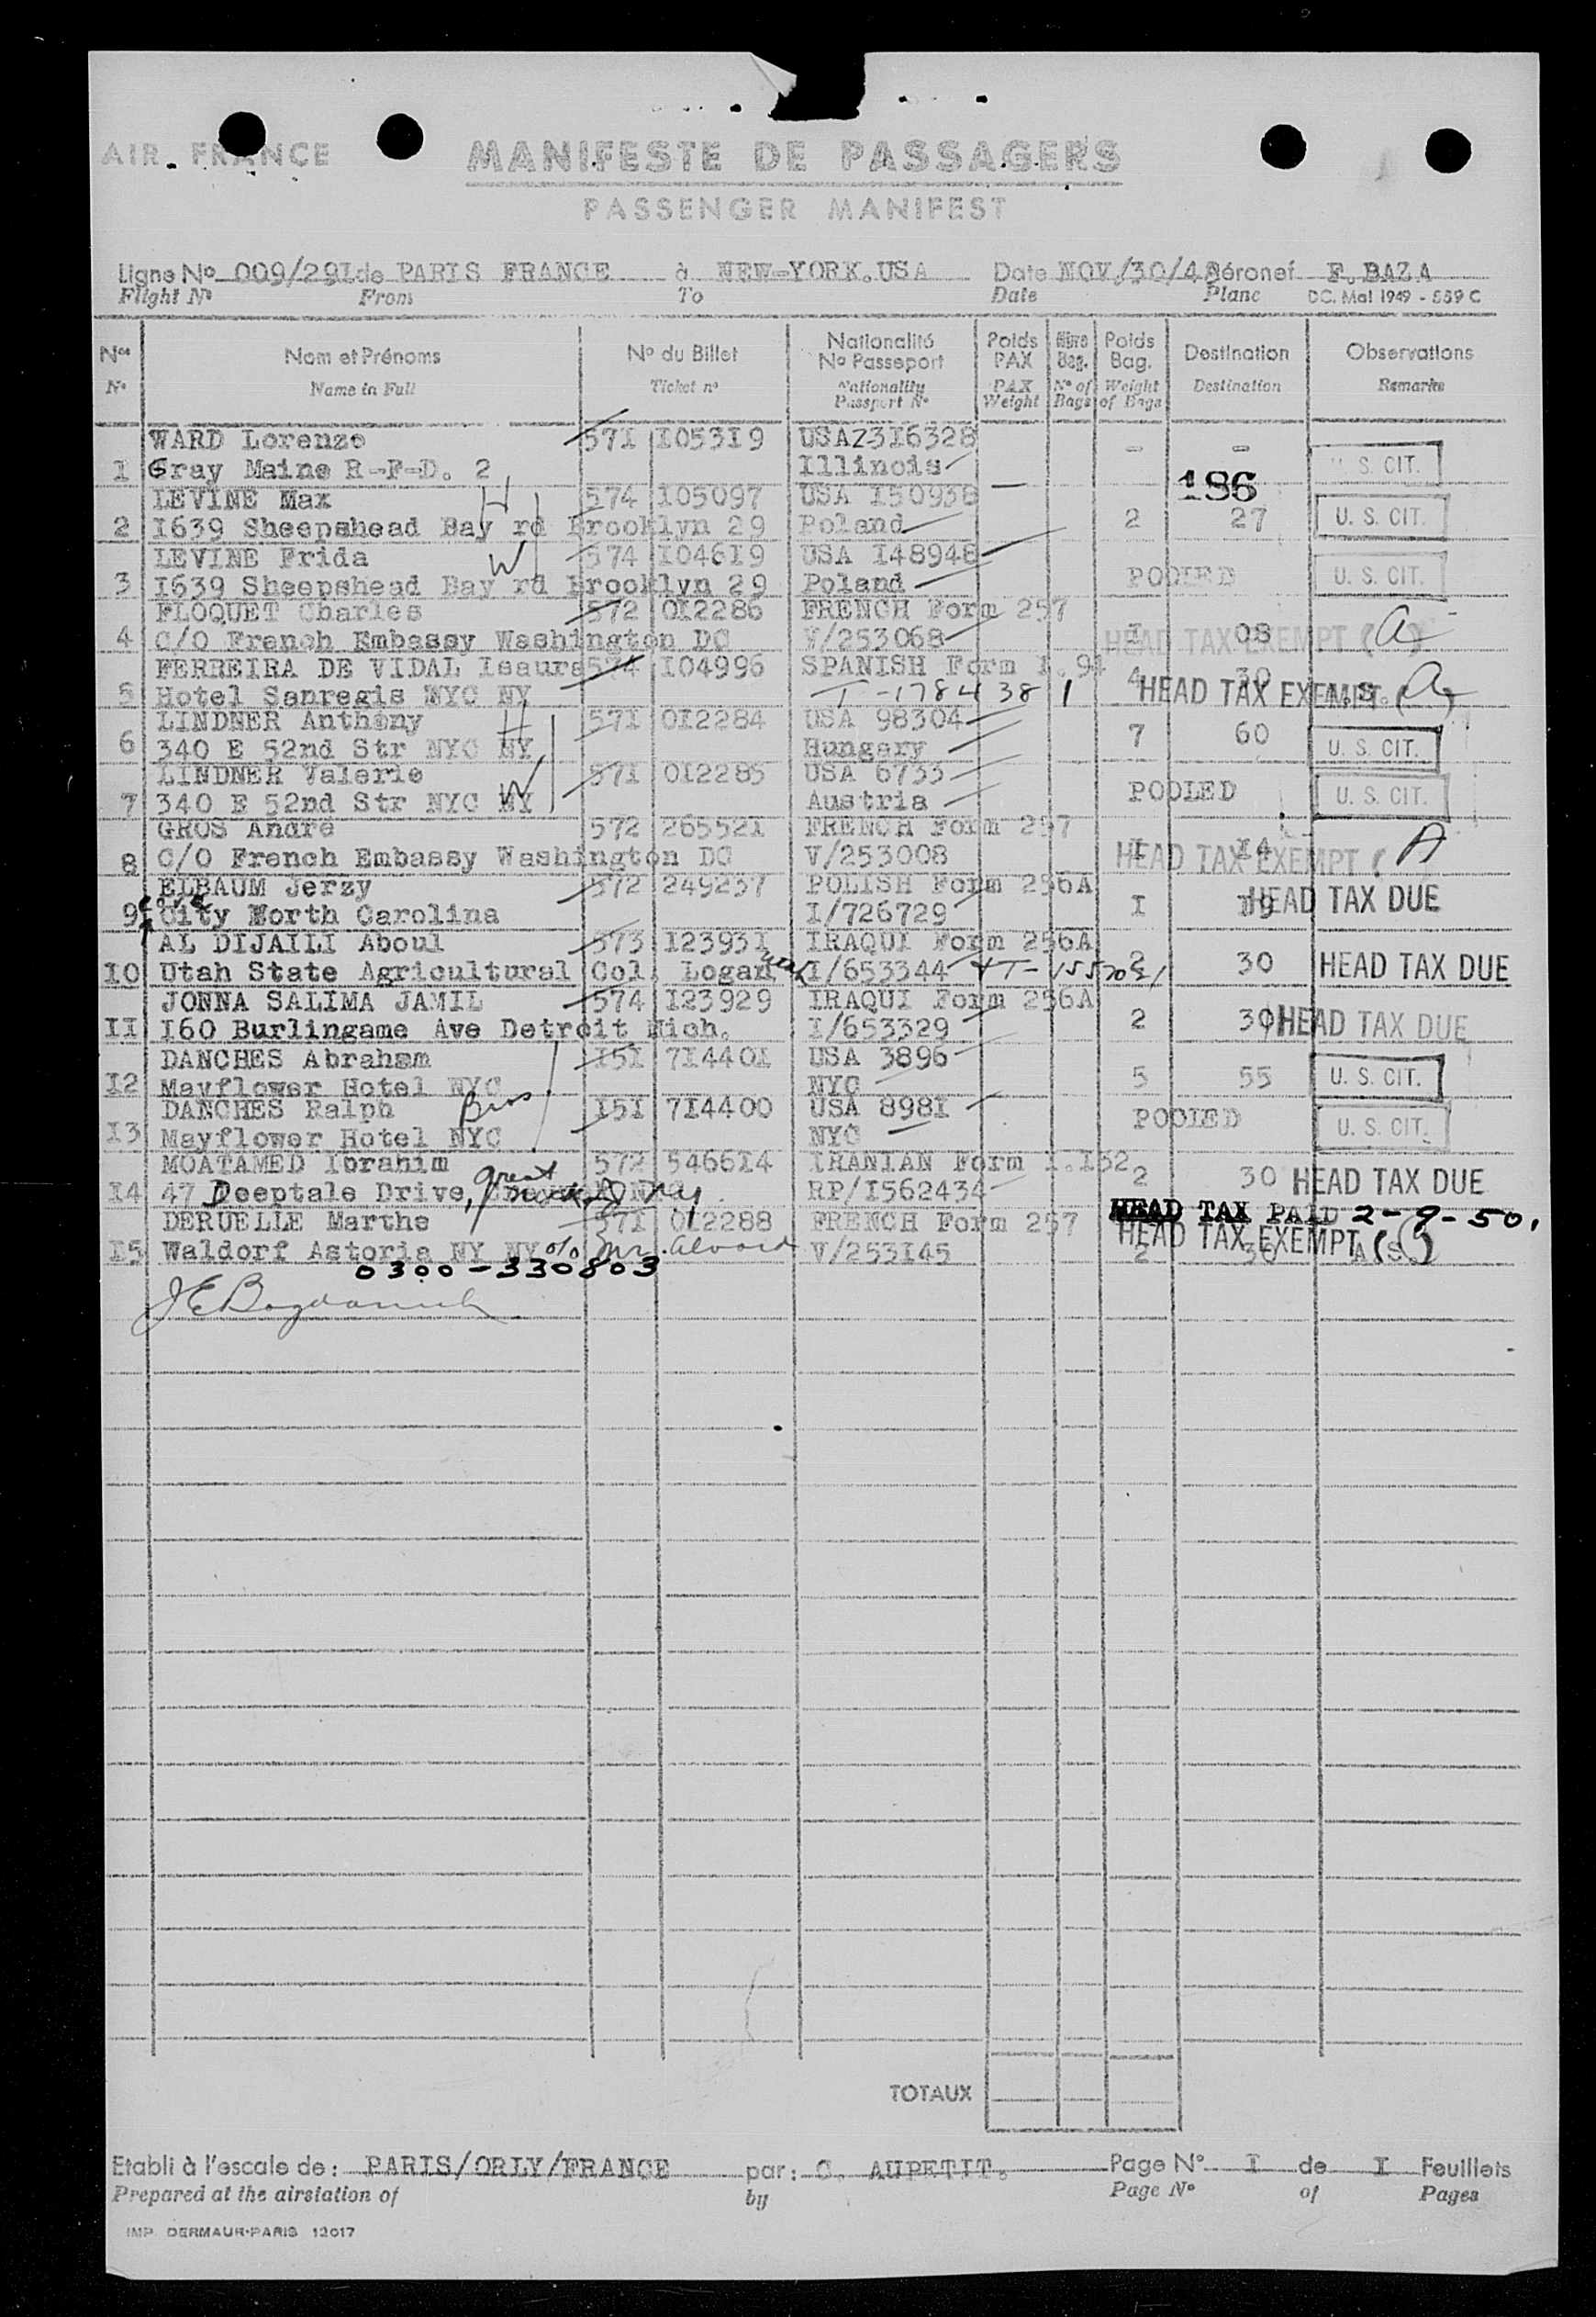 AIR FRANCE
MANIFESTE DE PASSAGERS
PASSENGER MANIFEST
Ligne No 009/29I de PARIS FRANCE à NEW-YORK.USA Date NOV./30/49 Aéronef F.BAZA
Flight No From To Date Plane DC. Mai 1949 - 559 C
Nos Nom et Prénoms No du Billet Nationalité No Passeport Poids PAX Nbre Bag. Poids Bag. Destination Observations
No Name in Full Ticket no Nationality Passport No PAX Weight No of Bags Weight of Bags Destination Remarks
WARD Lorenzo 571 I053I9 USAZ3I6328 - -
I Gray Maine R-F-D. 2 Illinois U. S. CIT.
186
LEVINE Max H 574 I05097 USA I50938
2 I639 Sheepshead Bay rd Brooklyn 29 Poland 2 27 U. S. CIT.
LEVINE Frida W 574 I046I9 USA I48948
3 I639 Sheepshead Bay rd Brooklyn 29 Poland POOLED U. S. CIT.
FLOQUET Charles 572 0I2286 FRENCH Form 257
4 C/O French Embassy Washington DC V/253068 I 08 HEAD TAX EXEMPT (A)
FERREIRA DE VIDAL Isaura 574 I04996 SPANISH Form I.94
5 Hotel Sanregis NYC NY T-1784381 4 30 HEAD TAX EXEMPT (A)
LINDNER Anthony H 571 0I2284 USA 98304
6 340 E 52nd Str NYC NY Hungary 7 60 U. S. CIT.
LINDNER Valerie W 571 0I2285 USA 6733
7 340 E 52nd Str NYC NY Austria POOLED U. S. CIT.
GROS André 572 26552I FRENCH Form 257
8 C/O French Embassy Washington DC V/253008 I I4 HEAD TAX EXEMPT ( A
ELBAUM Jerzy 572 249237 POLISH Form 256A
9 City North Carolina I/726729 I I9 HEAD TAX DUE
AL DIJAILI Aboul 573 I2393I IRAQUI Form 256A
IO Utah State Agricultural Col. Logan Utah I/653344 2 30 HEAD TAX DUE
JONNA SALIMA JAMIL 574 I23929 IRAQUI Form 256A
II I60 Burlingame Ave Detroit Mich. I/653329 2 30 HEAD TAX DUE
DANCHES Abraham I5I 7I440I USA 3896
I2 Mayflower Hotel NYC NYC 5 55 U. S. CIT.
DANCHES Ralph Bros I5I 7I4400 USA 898I
I3 Mayflower Hotel NYC NYC POOLED U. S. CIT.
MOATAMED Ibrahim 572 5466I4 IRANIAN Form I.I32
I4 47 Deeptale Drive, Great RP/I562434 2 30 HEAD TAX DUE
HEAD TAX PAID 2-9-50.
DERUELLE Marthe 571 0I2288 FRENCH Form 257
I5 Waldorf Astoria NY NY c/o Mr. Alvord V/253I45 2 30 HEAD TAX EXEMPT (A.S.)
0300-330803
TOTAUX
Etabli à l'escale de: PARIS/ORLY/FRANCE par: C. AUPETIT. Page No I de I Feuillets
Prepared at the airstation of by Page No of Pages
IMP. DERMAUR-PARIS 12017